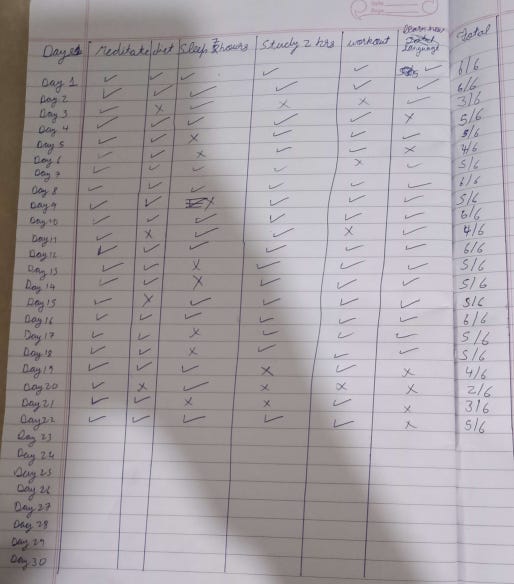 Days Meditate diet Sleep 7 hours Study 2 hrs workout learn new language Total
Day 1 ✓ ✓ ✓ ✓ ✓ ✓ 6/6
Day 2 ✓ ✓ ✓ ✓ ✓ ✓ 6/6
Day 3 ✓ × ✓ × × ✓ 3/6
Day 4 ✓ ✓ ✓ ✓ ✓ × 5/6
Day 5 ✓ ✓ × ✓ ✓ ✓ 5/6
Day 6 ✓ ✓ × ✓ ✓ × 4/6
Day 7 ✓ ✓ ✓ ✓ × ✓ 5/6
Day 8 ✓ ✓ ✓ ✓ ✓ ✓ 6/6
Day 9 ✓ ✓ × ✓ ✓ ✓ 5/6
Day 10 ✓ ✓ ✓ ✓ ✓ ✓ 6/6
Day 11 ✓ × ✓ ✓ × ✓ 4/6
Day 12 ✓ ✓ ✓ ✓ ✓ ✓ 6/6
Day 13 ✓ ✓ × ✓ ✓ ✓ 5/6
Day 14 ✓ ✓ × ✓ ✓ ✓ 5/6
Day 15 ✓ × ✓ ✓ ✓ ✓ 5/6
Day 16 ✓ ✓ ✓ ✓ ✓ ✓ 6/6
Day 17 ✓ ✓ × ✓ ✓ ✓ 5/6
Day 18 ✓ ✓ × ✓ ✓ ✓ 5/6
Day 19 ✓ ✓ ✓ × ✓ × 4/6
Day 20 ✓ × ✓ × × × 2/6
Day 21 ✓ ✓ × × ✓ × 3/6
Day 22 ✓ ✓ ✓ ✓ ✓ × 5/6
Day 23
Day 24
Day 25
Day 26
Day 27
Day 28
Day 29
Day 30